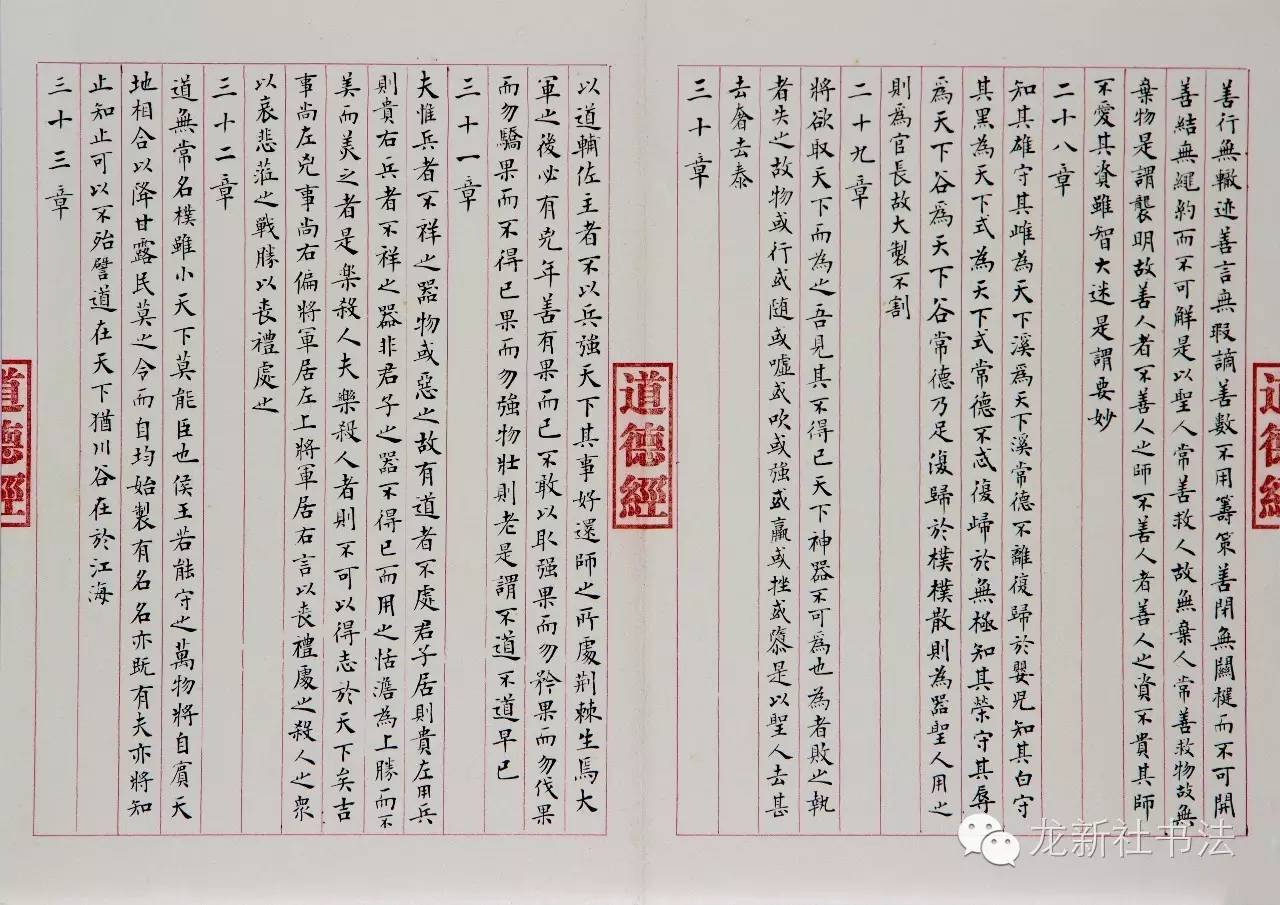 善行無轍迹善言無瑕謫善數不用籌策善閉無關楗而不可開
善結無繩約而不可解是以聖人常善救人故無棄人常善救物故無
棄物是謂襲明故善人者不善人之師不善人者善人之資不貴其師
不愛其資雖智大迷是謂要妙
二十八章
知其雄守其雌為天下溪為天下溪常德不離復歸於嬰兒知其白守
其黑為天下式為天下式常德不忒復歸於無極知其榮守其辱
爲天下谷爲天下谷常德乃足復歸於樸樸散則為器聖人用之
則爲官長故大製不割
二十九章
將欲取天下而為之吾見其不得已天下神器不可爲也為者敗之執
者失之故物或行或隨或噓或吹或強或羸或挫或隳是以聖人去甚
去奢去泰
三十章
以道輔佐王者不以兵強天下其事好還師之所處荆棘生焉大
軍之後必有兇年善有果而已不敢以取强果而勿矜果而勿伐果
而勿驕果而不得已果而勿強物壯則老是謂不道不道早已
三十一章
夫惟兵者不祥之器物或惡之故有道者不處君子居則貴左用兵
則貴右兵者不祥之器非君子之器不得已而用之恬澹為上勝而不
美而美之者是樂殺人夫樂殺人者則不可以得志於天下矣吉
事尚左兇事尚右偏將軍居左上將軍居右言以喪禮處之殺人之衆
以哀悲蒞之戰勝以喪禮處之
三十二章
道無常名樸雖小天下莫能臣也侯王若能守之萬物將自賓天
地相合以降甘露民莫之令而自均始製有名名亦既有夫亦將知
止知止可以不殆譬道在天下猶川谷在於江海
三十三章
道德經
道德經
道德經
龙新社书法